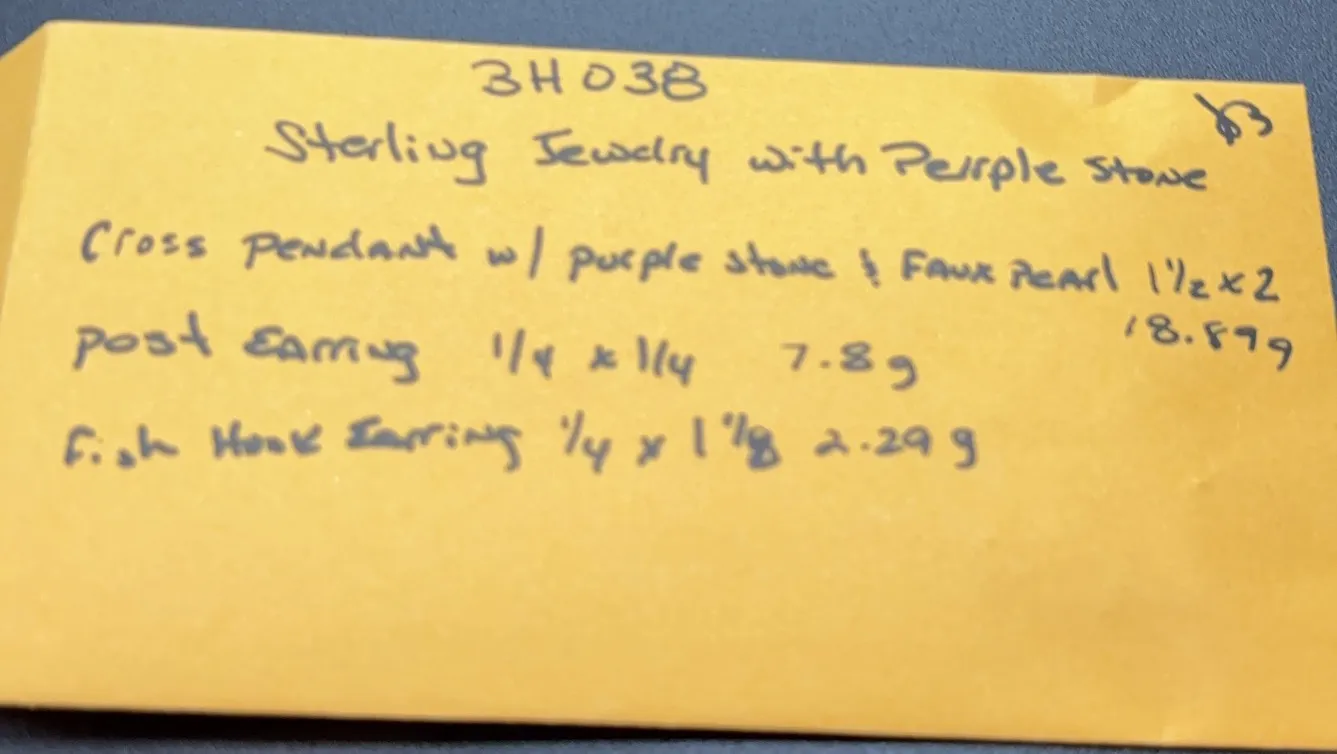 3H038
$3
Sterling Jewelry with Perrple Stone
Cross Pendant w/ purple stone & Faux Pearl 1 1/2 x 2
18.89g
Post Earring 1/4 x 1/4 7.8g
Fish Hook Earring 1/4 x 1 1/8 2.29g